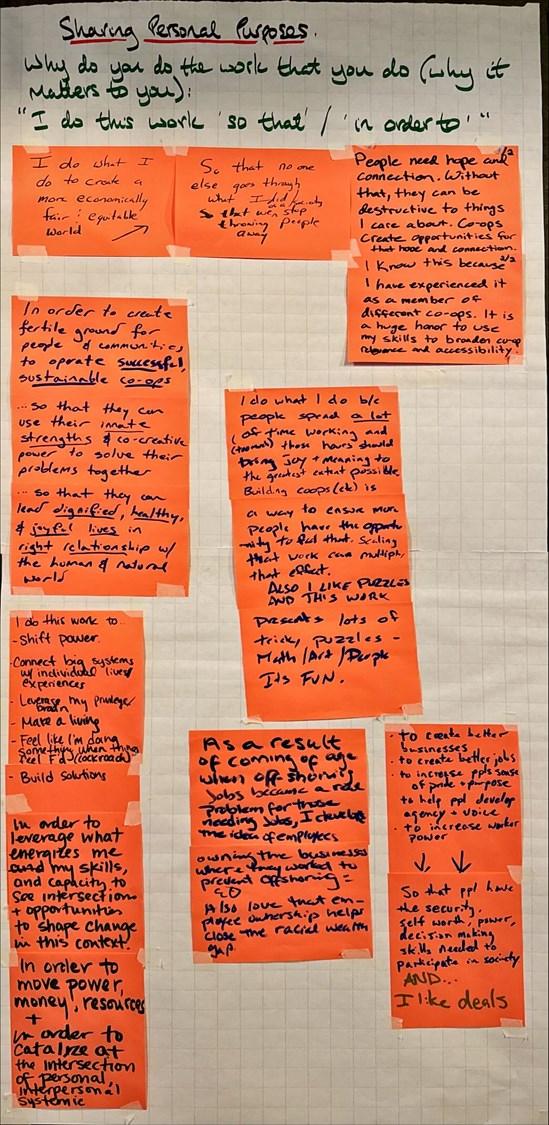 Sharing Personal Purposes.
Why do you do the work that you do (why it
matters to you):
"I do this work 'so that' / 'in order to' "
I do what I
do to create a
more economically
fair & equitable
world
So that no one
else goes through
what I did
So that we stop
throwing people
away
People need hope and 1/2
connection. Without
that, they can be
destructive to things
I care about. Co-ops
create opportunities for
that hope and connection.
I know this because 2/2
I have experienced it
as a member of
different co-ops. It is
a huge honor to use
my skills to broaden co-op
relevance and accessibility.
In order to create
fertile ground for
people & communities
to operate successful,
sustainable co-ops
...so that they can
use their innate
strengths & co-creative
power to solve their
problems together
...so that they can
lead dignified, healthy,
& joyful lives in
right relationship w/
the human & natural
world
I do what I do b/c
people spend a lot
of time working and
those hours should
bring joy + meaning to
the greatest extent possible
Building coops (etc) is
a way to ensure more
people have the opportu-
nity to feel that. Scaling
that work can multiply
that effect.
ALSO I LIKE PUZZLES
AND THIS WORK
presents lots of
tricky puzzles -
Math/Art/People
ITS FUN.
I do this work to...
- Shift power
- Connect big systems
w/ individual lives/
experiences
- Leverage my privilege/
brain
- Make a living
- Feel like I'm doing
something when things
feel F'd (cockroach)
- Build solutions
In order to
leverage what
energizes me
and my skills,
and capacity, to
see intersections
+ opportunities
to shape change
in this context.
In order to
move power,
money, resources
+
in order to
catalize at
the intersection
of personal
interpersonal
systemic
As a result
of coming of age
when offshoring
jobs became a real
problem for those
needing jobs, I develop
the idea of employees
owning the businesses
where they worked to
prevent offshoring =
SO
Also love that em-
ployee ownership helps
close the racial wealth
gap.
· to create better
businesses
· to create better jobs
· to increase ppls sense
of pride + purpose
· to help ppl develop
agency + voice
· to increase worker
power
So that ppl have
the security,
self worth, power,
decision making
skills needed to
participate in society
AND...
I like deals